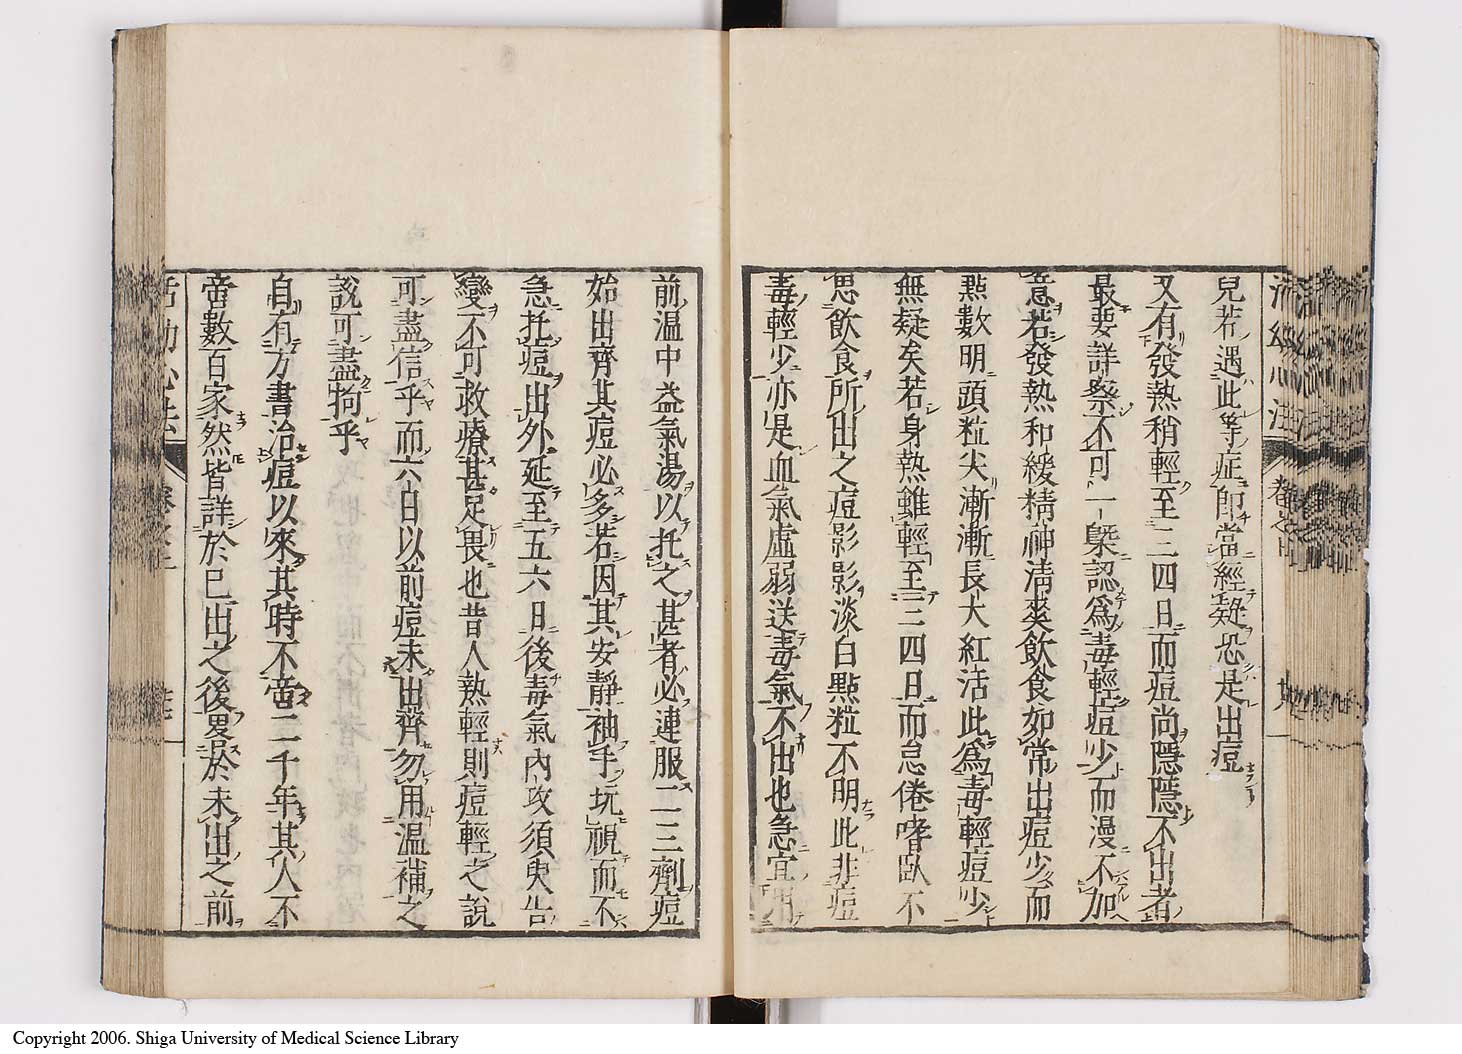 兒若遇此等症即當經疑恐是出痘
又有發熱稍輕至三四日而痘尚隱隱不出者
最要詳察不可一槩認爲毒輕痘少而漫不加
意若發熱和緩精神清爽飲食如常出痘少而
㸃數明頭粒尖漸漸長大紅活此爲毒輕痘少
無疑矣若身熱雖輕至三四日而怠倦嗜臥不
思飲食所出之痘影影淡白㸃粒不明此非痘
毒輕少亦是血氣虛弱送毒氣不出也急宜用
前温中益氣湯以托之甚者必連服二三劑痘
始出齊其痘必多若因其安靜袖手玩視而不
急托痘出外延至五六日後毒氣內攻須臾告
變不可救療甚足畏也昔人熱輕則痘輕之說
可盡信乎而六日以前痘未出齊勿用温補之
說可盡拘乎
自有方書治痘以來其時不啻二千年其人不
啻數百家然皆詳於已出之後畧於未出之前
活幼心法
活幼心法 卷之